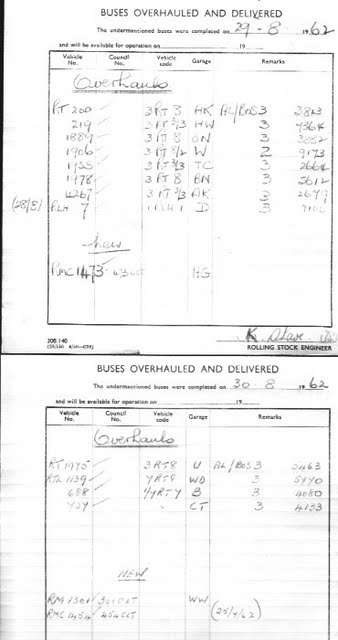 BUSES OVERHAULED AND DELIVERED
The undermentioned buses were completed on 29-8- 1962
and will be available for operation on 19
Vehicle No. Council No. Vehicle code Garage Remarks
Overhauls
RT 200 3RT3 HK AL/BOS3
219 3RT3/3 HW 3 4364
1889 3RT8 ON 3 3052
1906 3RT8/2 W 2 9173
3RT3/3 TC 3 2664
1978 3RT8 BN 3 2612
4267 3RT3/3 AK 3 2679
(28/8) RLH 7 1RLH1 D 3
New
RMC 1473 HG
K Slave
30B.140 ROLLING STOCK ENGINEER
BUSES OVERHAULED AND DELIVERED
The undermentioned buses were completed on 30-8- 1962
and will be available for operation on 19
Vehicle No. Council No. Vehicle code Garage Remarks
Overhauls
RT 1975 3RT8 U AL/BOS3 5463
RTL 1139 7RT8 WD 3 5440
688 B 3 4080
CT 3 4133
NEW
RM 1301 301CLT WW
RMC 1454 454CLT (25/7/62)